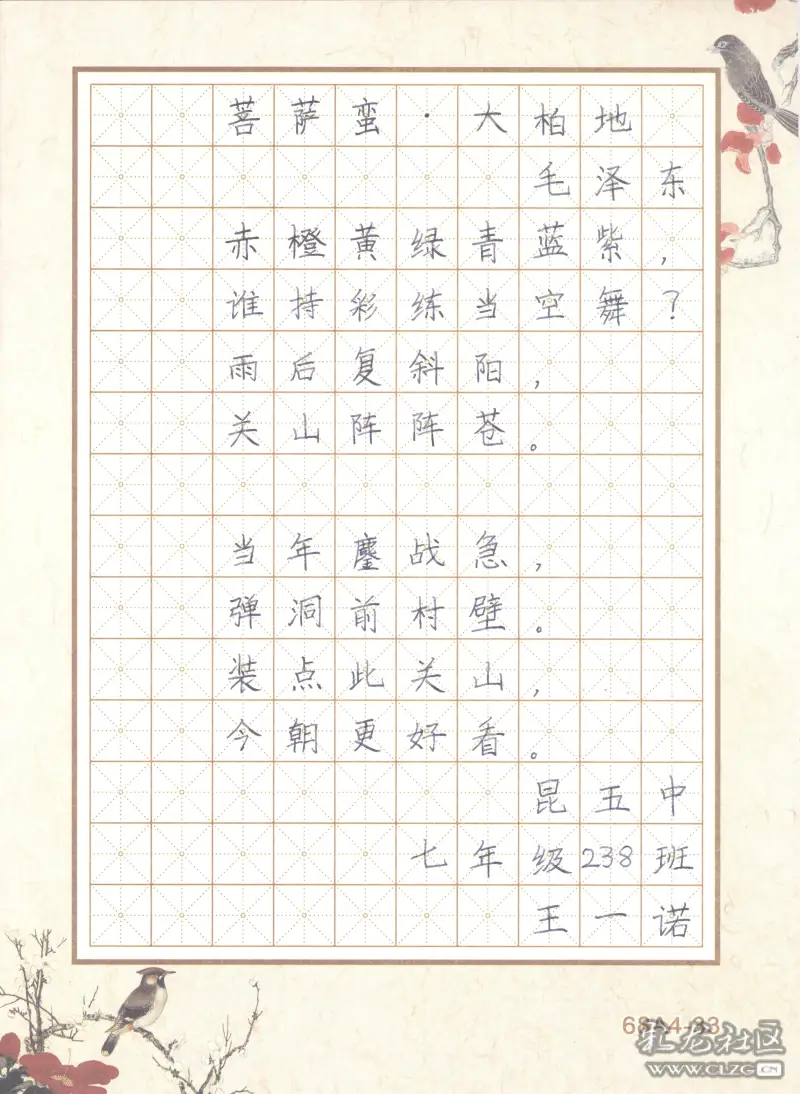 菩萨蛮·大柏地
毛泽东
赤橙黄绿青蓝紫，
谁持彩练当空舞？
雨后复斜阳，
关山阵阵苍。
当年鏖战急，
弹洞前村壁。
装点此关山，
今朝更好看。
昆五中
七年级238班
王一诺
68A4-33
札龙社区
WWW.CLZG.CN